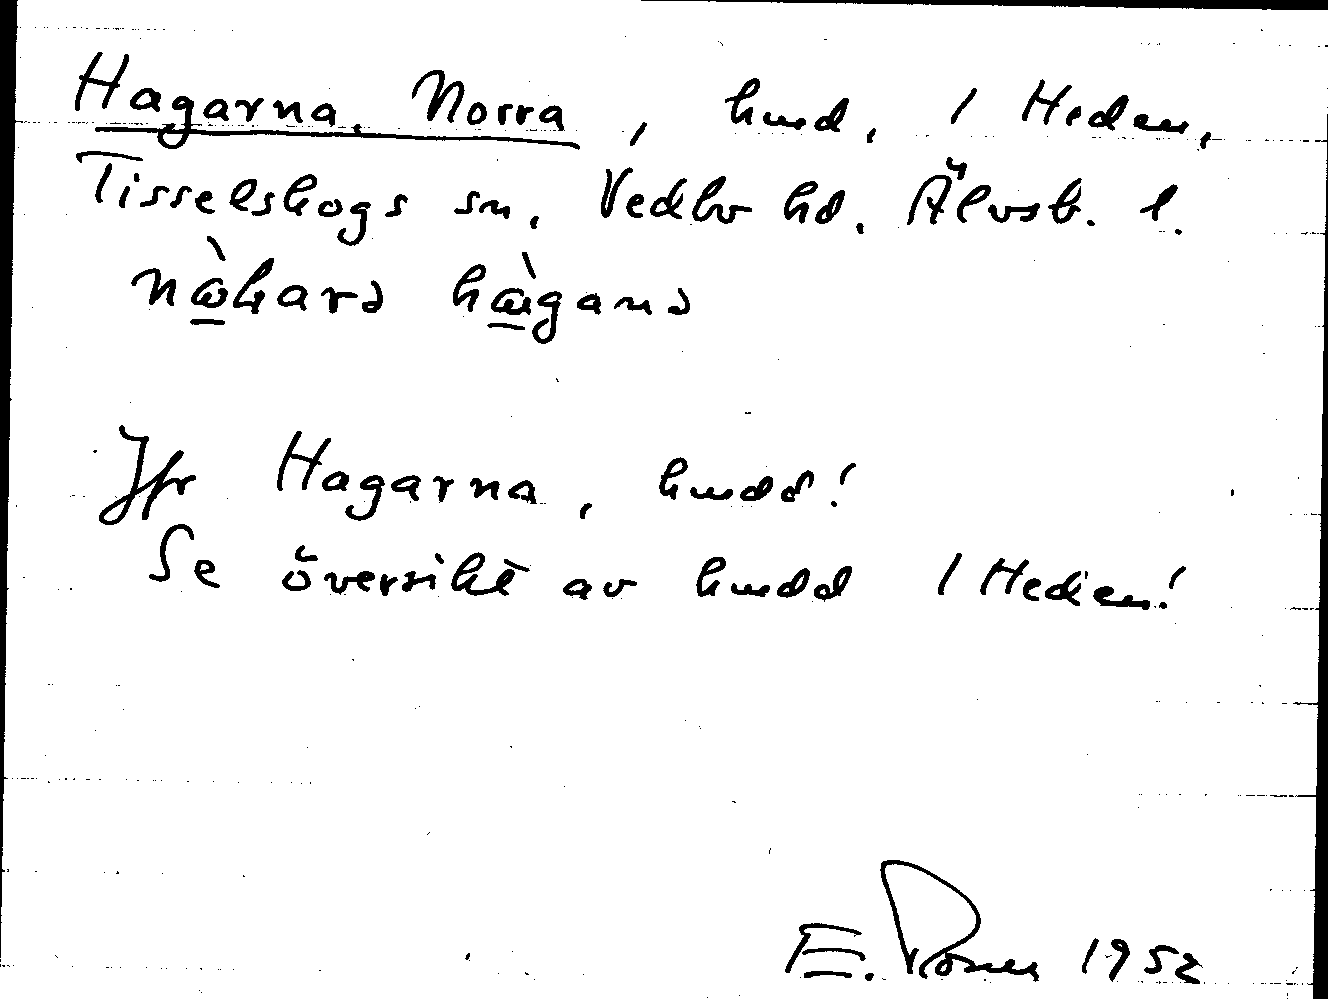 Hagarna, Norra, hmd, 1 Heden,
Tisselskogs sn, Vedbo hd, Älvsb. l.
hàgana
Jfr Hagarna, hmdd!
Se översikt av hmdd 1 Heden!
E. Rosén 1952